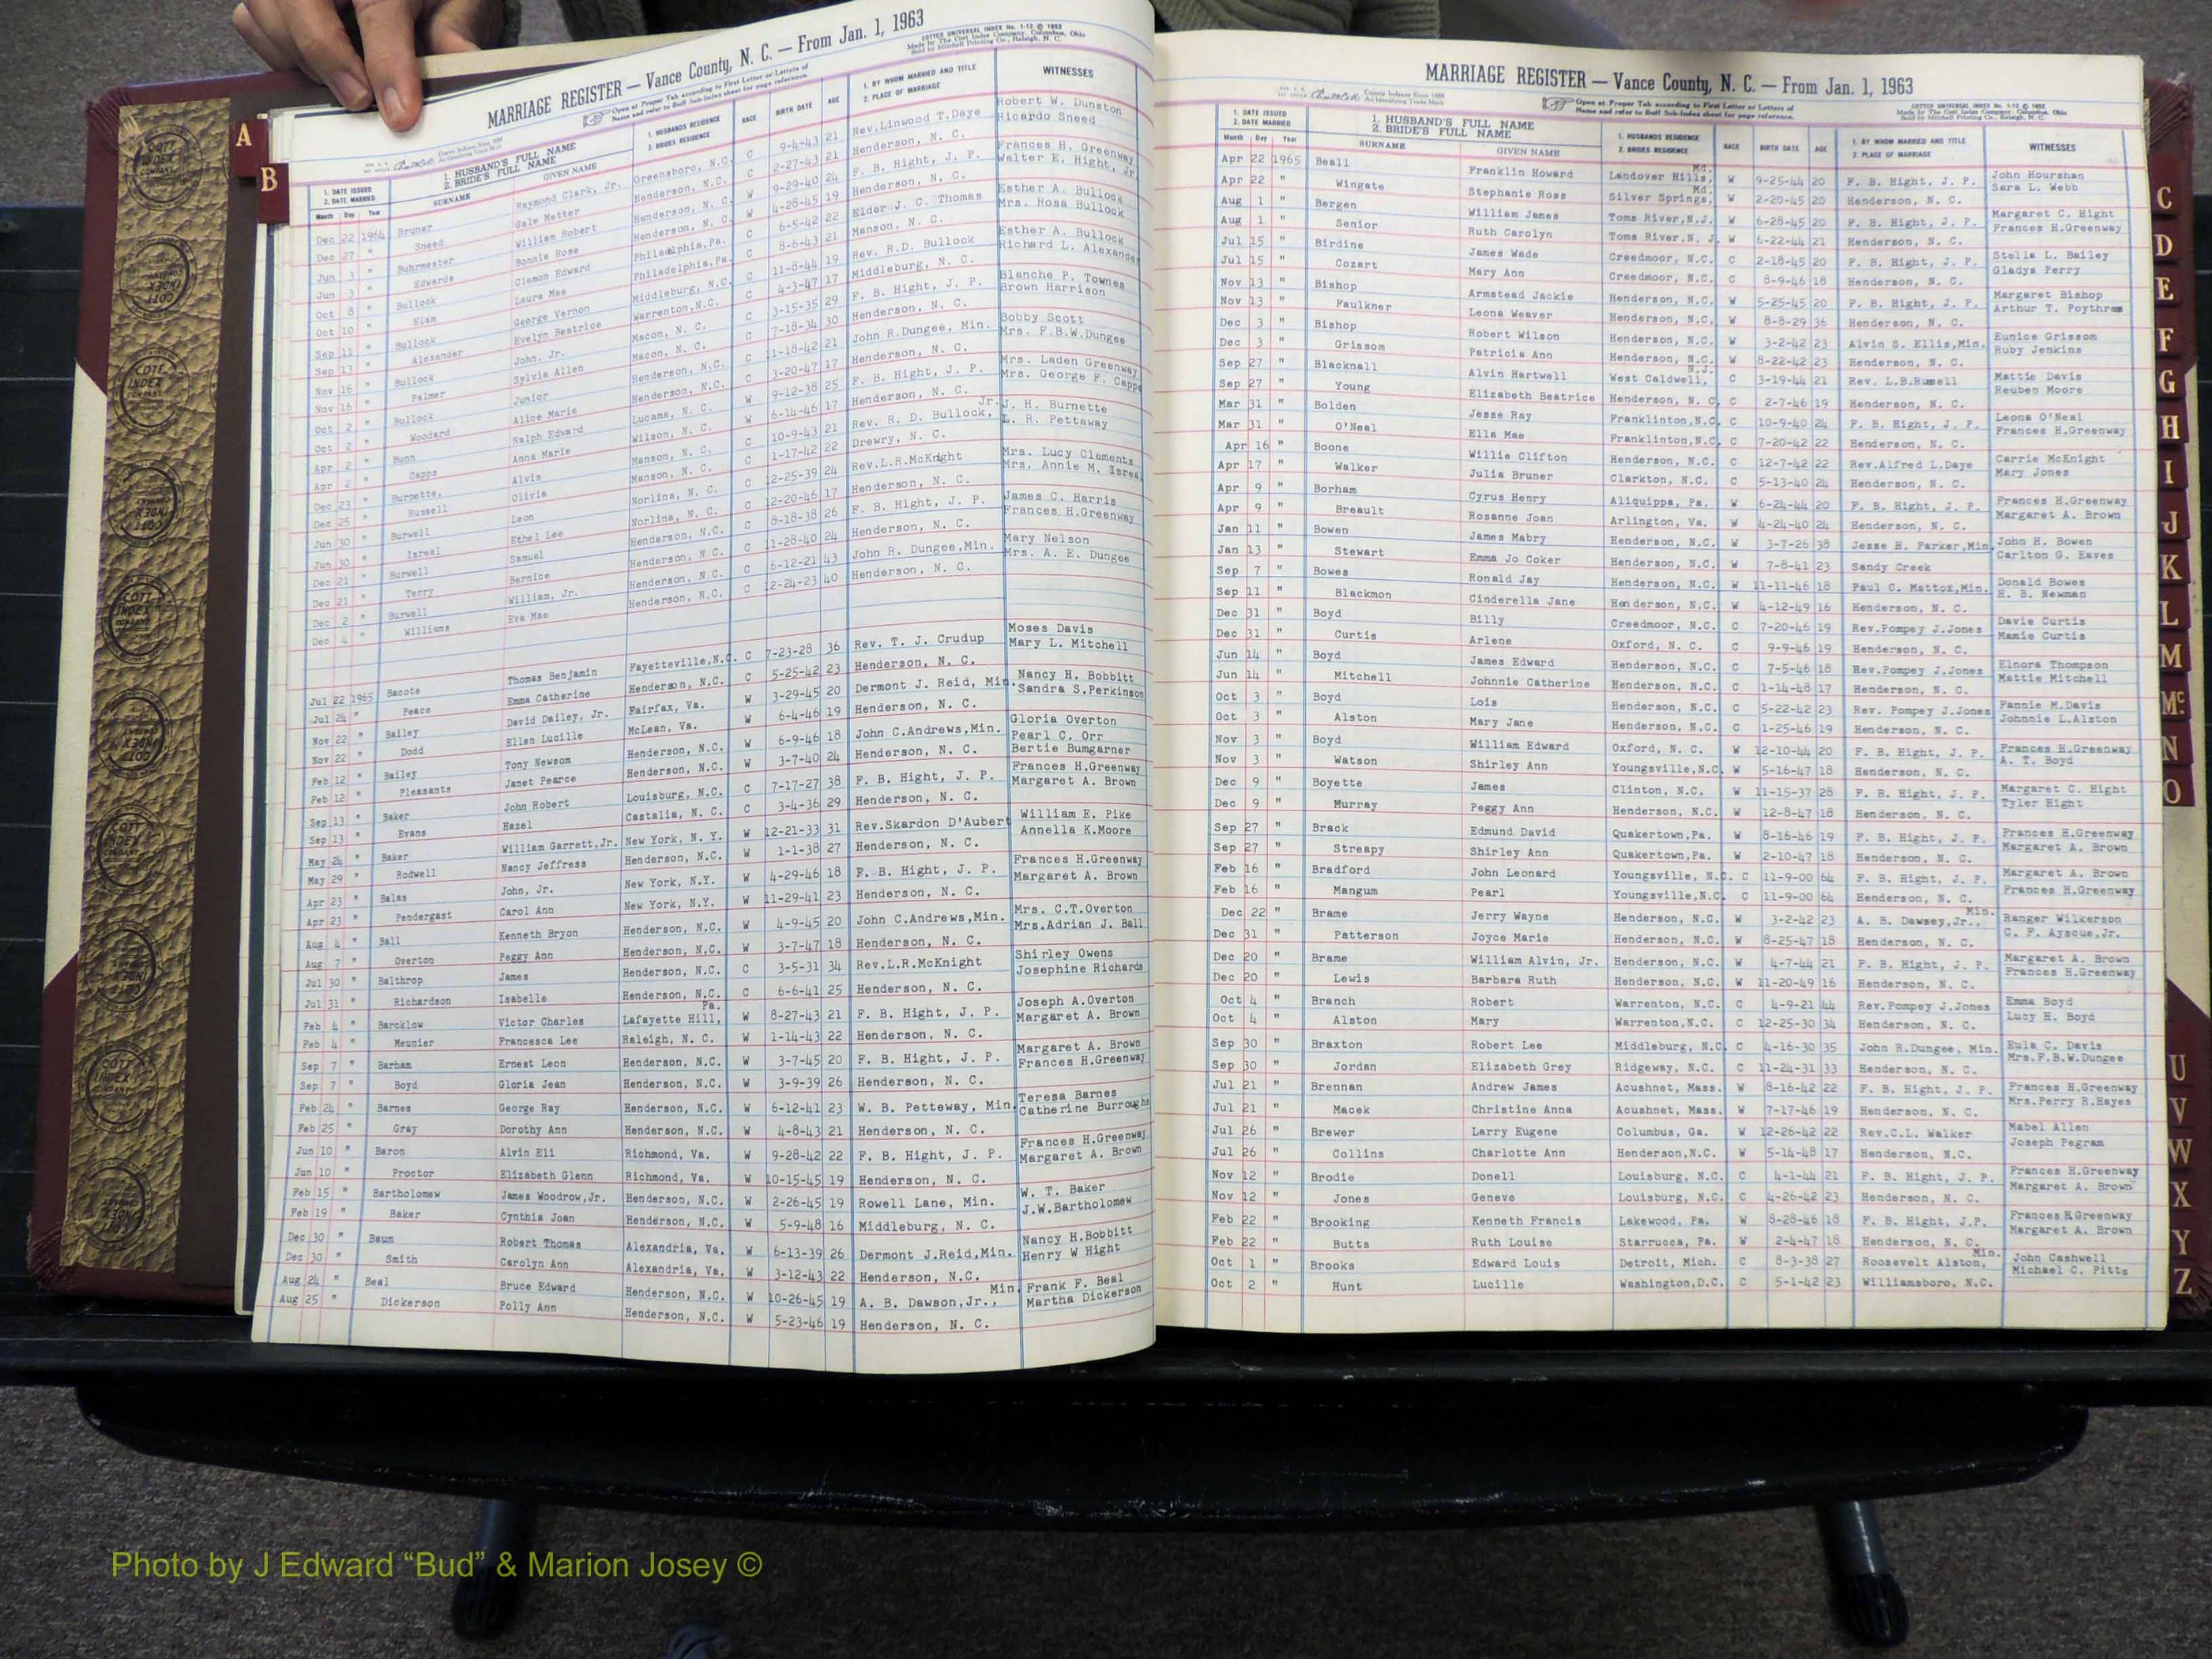 MARRIAGE REGISTER — Vance County, N. C. — From Jan. 1, 1963
COTTCO UNIVERSAL INDEX No. 1-12 © 1952
Made by The Cott Index Company, Columbus, Ohio
Sold by Mitchell Printing Co., Raleigh, N. C.
Open at Proper Tab according to First Letter or Letters of
Name and refer to Buff Sub-Index sheet for page reference.
1. DATE ISSUED 2. DATE MARRIED 1. HUSBAND'S FULL NAME 2. BRIDE'S FULL NAME 1. HUSBANDS RESIDENCE 2. BRIDES RESIDENCE RACE BIRTH DATE AGE 1. BY WHOM MARRIED AND TITLE 2. PLACE OF MARRIAGE WITNESSES
Month Day Year SURNAME GIVEN NAME
Dec 22 1964 Bruner Raymond Clark, Jr. Greensboro, N.C. C 9-4-43 21 Rev.Linwood T.Daye Robert W. Dunston
Dec 27 " Sneed Gale Metter Henderson, N.C. C 2-27-43 21 Henderson, N. C. Ricardo Sneed
Jun 3 " Buhrmester William Robert Henderson, N.C. W 9-29-40 24 F. B. Hight, J. P. Frances H. Greenway
Jun 3 " Edwards Bonnie Rose Henderson, N.C. W 4-28-45 19 Henderson, N. C. Walter E. Hight, Jr.
Oct 8 " Bullock Clemon Edward Philadlphia,Pa. C 6-5-42 22 Elder J. C. Thomas Esther A. Bullock
Oct 10 " Elam Laura Mae Philadelphia,Pa. C 8-6-43 21 Manson, N. C. Mrs. Rosa Bullock
Sep 11 " Bullock George Vernon Middleburg, N.C. C 11-8-44 19 Rev. R.D. Bullock Esther A. Bullock
Sep 13 " Alexander Evelyn Beatrice Warrenton,N.C. C 4-3-47 17 Middleburg, N. C. Richard L. Alexander
Nov 16 " Bullock John, Jr. Macon, N. C. C 3-15-35 29 F. B. Hight, J. P. Blanche P. Townes
Nov 16 " Palmer Sylvia Allen Macon, N. C. C 7-18-34 30 Henderson, N. C. Brown Harrison
Oct 2 " Bullock Junior Henderson, N.C. C 11-18-42 21 John R.Dungee, Min. Bobby Scott
Oct 2 " Woodard Alice Marie Henderson, N.C. C 3-20-47 17 Henderson, N. C. Mrs. F.B.W.Dungee
Apr 2 " Bunn Ralph Edward Lucama, N. C. W 9-12-38 25 F. B. Hight, J. P. Mrs. Laden Greenway
Apr 2 " Capps Anna Marie Wilson, N. C. W 6-14-46 17 Henderson, N. C. Mrs. George F. Capps
Dec 23 " Burnette, Alvis Manson, N. C. C 10-9-43 21 Rev. R. D. Bullock, Jr. J. H. Burnette
Dec 25 " Russell Olivia Manson, N.C. C 1-17-42 22 Drewry, N. C. L. R. Pettaway
Jun 30 " Burwell Leon Norlina, N. C. C 12-25-39 24 Rev.L.R.McKnight Mrs. Lucy Clements
Jun 30 " Isreal Ethel Lee Norlina, N. C. C 12-20-46 17 Henderson, N. C. Mrs. Annie M. Isreal
Dec 21 " Burwell Samuel Henderson, N.C. C 8-18-38 26 F. B. Hight, J. P. James C. Harris
Dec 21 " Terry Bernice Henderson, N.C. C 11-28-40 24 Henderson, N. C. Frances H.Greenway
Dec 2 " Burwell William, Jr. Henderson, N.C. C 6-12-21 43 John R. Dungee,Min. Mary Nelson
Dec 4 " Williams Eva Mae Henderson, N.C. C 12-24-23 40 Henderson, N. C. Mrs. A. E. Dungee
Jul 22 1965 Bacote Thomas Benjamin Fayetteville,N.C. C 7-23-28 36 Rev. T. J. Crudup Moses Davis
Jul 24 " Peace Emma Catherine Henderson, N.C. C 5-25-42 23 Henderson, N. C. Mary L. Mitchell
Nov 22 " Bailey David Dailey, Jr. Fairfax, Va. W 3-29-45 20 Dermont J. Reid, Min. Nancy H. Bobbitt
Nov 22 " Dodd Ellen Lucille McLean, Va. W 6-4-46 19 Henderson, N. C. Sandra S.Perkinson
Feb 12 " Bailey Tony Newsom Henderson, N.C. W 6-9-46 18 John C.Andrews,Min. Gloria Overton
Feb 12 " Pleasants Janet Pearce Henderson, N.C. W 3-7-40 24 Henderson, N. C. Pearl C. Orr
Bertie Bumgarner
Sep 13 " Baker John Robert Louisburg, N.C. C 7-17-27 38 F. B. Hight, J. P. Frances H.Greenway
Sep 13 " Evans Hazel Castalia, N. C. C 3-4-36 29 Henderson, N. C. Margaret A. Brown
May 24 " Baker William Garrett,Jr. New York, N. Y. W 12-21-33 31 Rev.Skardon D'Aubert William E. Pike
May 29 " Rodwell Nancy Jeffress Henderson, N.C. W 1-1-38 27 Henderson, N. C. Annella K.Moore
Apr 23 " Balas John, Jr. New York, N.Y. W 4-29-46 18 F. B. Hight, J. P. Frances H.Greenway
Apr 23 " Pendergast Carol Ann New York, N.Y. W 11-29-41 23 Henderson, N. C. Margaret A. Brown
Aug 4 " Ball Kenneth Bryon Henderson, N.C. W 4-9-45 20 John C.Andrews,Min. Mrs. C.T.Overton
Aug 7 " Overton Peggy Ann Henderson, N.C. W 3-7-47 18 Henderson, N. C. Mrs.Adrian J. Ball
Jul 30 " Balthrop James Henderson, N.C. C 3-5-31 34 Rev.L.R.McKnight Shirley Owens
Jul 31 " Richardson Isabelle Henderson, N.C. C 6-6-41 25 Henderson, N. C. Josephine Richards
Feb 4 " Barcklow Victor Charles Lafayette Hill, Pa. W 8-27-43 21 F. B. Hight, J. P. Joseph A.Overton
Feb 4 " Meunier Francesca Lee Raleigh, N. C. W 1-14-43 22 Henderson, N. C. Margaret A. Brown
Sep 7 " Barham Ernest Leon Henderson, N.C. W 3-7-45 20 F. B. Hight, J. P. Margaret A. Brown
Sep 7 " Boyd Gloria Jean Henderson, N.C. W 3-9-39 26 Henderson, N. C. Frances H.Greenway
Feb 24 " Barnes George Ray Henderson, N.C. W 6-12-41 23 W. B. Petteway, Min. Teresa Barnes
Feb 25 " Gray Dorothy Ann Henderson, N.C. W 4-8-43 21 Henderson, N. C. Catherine Burroughs
Jun 10 " Baron Alvin Eli Richmond, Va. W 9-28-42 22 F. B. Hight, J. P. Frances H.Greenway
Jun 10 " Proctor Elizabeth Glenn Richmond, Va. W 10-15-45 19 Henderson, N. C. Margaret A. Brown
Feb 15 " Bartholomew James Woodrow,Jr. Henderson, N.C. W 2-26-45 19 Rowell Lane, Min. W. T. Baker
Feb 19 " Baker Cynthia Joan Henderson, N.C. W 5-9-48 16 Middleburg, N. C. J.W.Bartholomew
Dec 30 " Baum Robert Thomas Alexandria, Va. W 6-13-39 26 Dermont J.Reid,Min. Nancy H.Bobbitt
Dec 30 " Smith Carolyn Ann Alexandria, Va. W 3-12-43 22 Henderson, N.C. Henry W Hight
Aug 24 " Beal Bruce Edward Henderson, N.C. W 10-26-45 19 A. B. Dawson,Jr., Min. Frank F. Beal
Aug 25 " Dickerson Polly Ann Henderson, N.C. W 5-23-46 19 Henderson, N. C. Martha Dickerson
MARRIAGE REGISTER — Vance County, N. C. — From Jan. 1, 1963
Open at Proper Tab according to First Letter or Letters of
Name and refer to Buff Sub-Index sheet for page reference.
COTTCO UNIVERSAL INDEX No. 1-12 © 1952
Made by The Cott Index Company, Columbus, Ohio
Sold by Mitchell Printing Co., Raleigh, N. C.
1. DATE ISSUED 2. DATE MARRIED 1. HUSBAND'S FULL NAME 2. BRIDE'S FULL NAME 1. HUSBANDS RESIDENCE 2. BRIDES RESIDENCE RACE BIRTH DATE AGE 1. BY WHOM MARRIED AND TITLE 2. PLACE OF MARRIAGE WITNESSES
Month Day Year SURNAME GIVEN NAME
Apr 22 1965 Beall Franklin Howard Landover Hills, Md. W 9-25-44 20 F. B. Hight, J. P. John Hourshan
Apr 22 " Wingate Stephanie Ross Silver Springs, Md. W 2-20-45 20 Henderson, N. C. Sara L. Webb
Aug 1 " Bergen William James Toms River,N.J. W 6-28-45 20 F. B. Hight, J. P. Margaret C. Hight
Aug 1 " Senior Ruth Carolyn Toms River,N. J. W 6-22-44 21 Henderson, N. C. Frances H.Greenway
Jul 15 " Birdine James Wade Creedmoor, N.C. C 2-18-45 20 F. B. Hight, J. P. Stella L. Bailey
Jul 15 " Cozart Mary Ann Creedmoor, N.C. C 8-9-46 18 Henderson, N. C. Gladys Perry
Nov 13 " Bishop Armstead Jackie Henderson, N.C. W 5-25-45 20 F. B. Hight, J. P. Margaret Bishop
Nov 13 " Faulkner Leona Weaver Henderson, N.C. W 8-8-29 36 Henderson, N. C. Arthur T. Poythress
Dec 3 " Bishop Robert Wilson Henderson, N.C. W 3-2-42 23 Alvin S. Ellis,Min. Eunice Grissom
Dec 3 " Grissom Patricia Ann Henderson, N.C. W 8-22-42 23 Henderson, N. C. Ruby Jenkins
Sep 27 " Blacknall Alvin Hartwell West Caldwell, N.J. C 3-19-44 21 Rev. L.B.Russell Mattie Davis
Sep 27 " Young Elizabeth Beatrice Henderson, N. C. C 2-7-46 19 Henderson, N. C. Reuben Moore
Mar 31 " Bolden Jesse Ray Franklinton,N.C. C 10-9-40 24 F. B. Hight, J. P. Leona O'Neal
Mar 31 " O'Neal Ella Mae Franklinton,N.C. C 7-20-42 22 Henderson, N. C. Frances H.Greenway
Apr 16 " Boone Willie Clifton Henderson, N.C. C 12-7-42 22 Rev.Alfred L.Daye Carrie McKnight
Apr 17 " Walker Julia Bruner Clarkton, N.C. C 5-13-40 24 Henderson, N. C. Mary Jones
Apr 9 " Borham Cyrus Henry Aliquippa, Pa. W 6-24-44 20 F. B. Hight, J. P. Frances H.Greenway
Apr 9 " Breault Rosanne Joan Arlington, Va. W 4-24-40 24 Henderson, N. C. Margaret A. Brown
Jan 11 " Bowen James Mabry Henderson, N.C. W 3-7-26 38 Jesse H. Parker,Min. John H. Bowen
Jan 13 " Stewart Emma Jo Coker Henderson, N.C. W 7-8-41 23 Sandy Creek Carlton G. Eaves
Sep 7 " Bowes Ronald Jay Henderson, N.C. W 11-11-46 18 Paul C. Mattox,Min. Donald Bowes
Sep 11 " Blackmon Cinderella Jane Henderson, N.C. W 4-12-49 16 Henderson, N. C. H. B. Newman
Dec 31 " Boyd Billy Creedmoor, N.C. C 7-20-46 19 Rev.Pompey J.Jones Davie Curtis
Dec 31 " Curtis Arlene Oxford, N. C. C 9-9-46 19 Henderson, N. C. Mamie Curtis
Jun 14 " Boyd James Edward Henderson, N.C. C 7-5-46 18 Rev.Pompey J.Jones Elnora Thompson
Jun 14 " Mitchell Johnnie Catherine Henderson, N.C. C 1-14-48 17 Henderson, N. C. Mattie Mitchell
Oct 3 " Boyd Lois Henderson, N.C. C 5-22-42 23 Rev. Pompey J.Jones Fannie M.Davis
Oct 3 " Alston Mary Jane Henderson, N.C. C 1-25-46 19 Henderson, N. C. Johnnie L.Alston
Nov 3 " Boyd William Edward Oxford, N. C. W 12-10-44 20 F. B. Hight, J. P. Frances H.Greenway
Nov 3 " Watson Shirley Ann Youngsville,N.C. W 5-16-47 18 Henderson, N. C. A. T. Boyd
Dec 9 " Boyette James Clinton, N.C. W 11-15-37 28 F. B. Hight, J. P. Margaret C. Hight
Dec 9 " Murray Peggy Ann Henderson, N.C. W 12-8-47 18 Henderson, N. C. Tyler Hight
Sep 27 " Brack Edmund David Quakertown,Pa. W 8-16-46 19 F. B. Hight, J. P. Frances H.Greenway
Sep 27 " Streapy Shirley Ann Quakertown,Pa. W 2-10-47 18 Henderson, N. C. Margaret A. Brown
Feb 16 " Bradford John Leonard Youngsville, N.C. C 11-9-00 64 F. B. Hight, J. P. Margaret A. Brown
Feb 16 " Mangum Pearl Youngsville,N.C. C 11-9-00 64 Henderson, N. C. Frances H.Greenway
Dec 22 " Brame Jerry Wayne Henderson, N.C. W 3-2-42 23 A. B. Dawsey,Jr., Min. Ranger Wilkerson
Dec 31 " Patterson Joyce Marie Henderson, N.C. W 8-25-47 18 Henderson, N. C. C. F. Ayscue,Jr.
Dec 20 " Brame William Alvin, Jr. Henderson, N.C. W 4-7-44 21 F. B. Hight, J. P. Margaret A. Brown
Dec 20 " Lewis Barbara Ruth Henderson, N.C. W 11-20-49 16 Henderson, N. C. Frances H.Greenway
Oct 4 " Branch Robert Warrenton, N.C. C 4-9-21 44 Rev.Pompey J.Jones Emma Boyd
Oct 4 " Alston Mary Warrenton,N.C. C 12-25-30 34 Henderson, N. C. Lucy H. Boyd
Sep 30 " Braxton Robert Lee Middleburg, N.C. C 4-16-30 35 John R.Dungee, Min. Eula C. Davis
Sep 30 " Jordan Elizabeth Grey Ridgeway, N.C. C 11-24-31 33 Henderson, N. C. Mrs.F.B.W.Dungee
Jul 21 " Brennan Andrew James Acushnet, Mass. W 8-16-42 22 F. B. Hight, J. P. Frances H.Greenway
Jul 21 " Macek Christine Anna Acushnet, Mass. W 7-17-46 19 Henderson, N. C. Mrs.Perry R.Hayes
Jul 26 " Brewer Larry Eugene Columbus, Ga. W 12-26-42 22 Rev.C.L. Walker Mabel Allen
Jul 26 " Collins Charlotte Ann Henderson,N.C. W 5-14-48 17 Henderson, N.C. Joseph Pegram
Nov 12 " Brodie Donell Louisburg, N.C. C 4-1-44 21 F. B. Hight, J. P. Frances H.Greenway
Nov 12 " Jones Geneve Louisburg, N.C. C 4-26-42 23 Henderson, N. C. Margaret A. Brown
Feb 22 " Brooking Kenneth Francis Lakewood, Pa. W 8-28-46 18 F. B. Hight, J.P. Frances H.Greenway
Feb 22 " Butts Ruth Louise Starrucca, Pa. W 2-4-47 18 Henderson, N. C. Margaret A. Brown
Oct 1 " Brooks Edward Louis Detroit, Mich. C 8-3-38 27 Roosevelt Alston, Min. John Cashwell
Oct 2 " Hunt Lucille Washington,D.C. C 5-1-42 23 Williamsboro, N.C. Michael C. Pitts
A
B
C
D
E
F
G
H
I
J
K
L
M
Mc
N
O
U
V
W
X
Y
Z
COTT INDEX COMPANY
Photo by J Edward “Bud” & Marion Josey ©